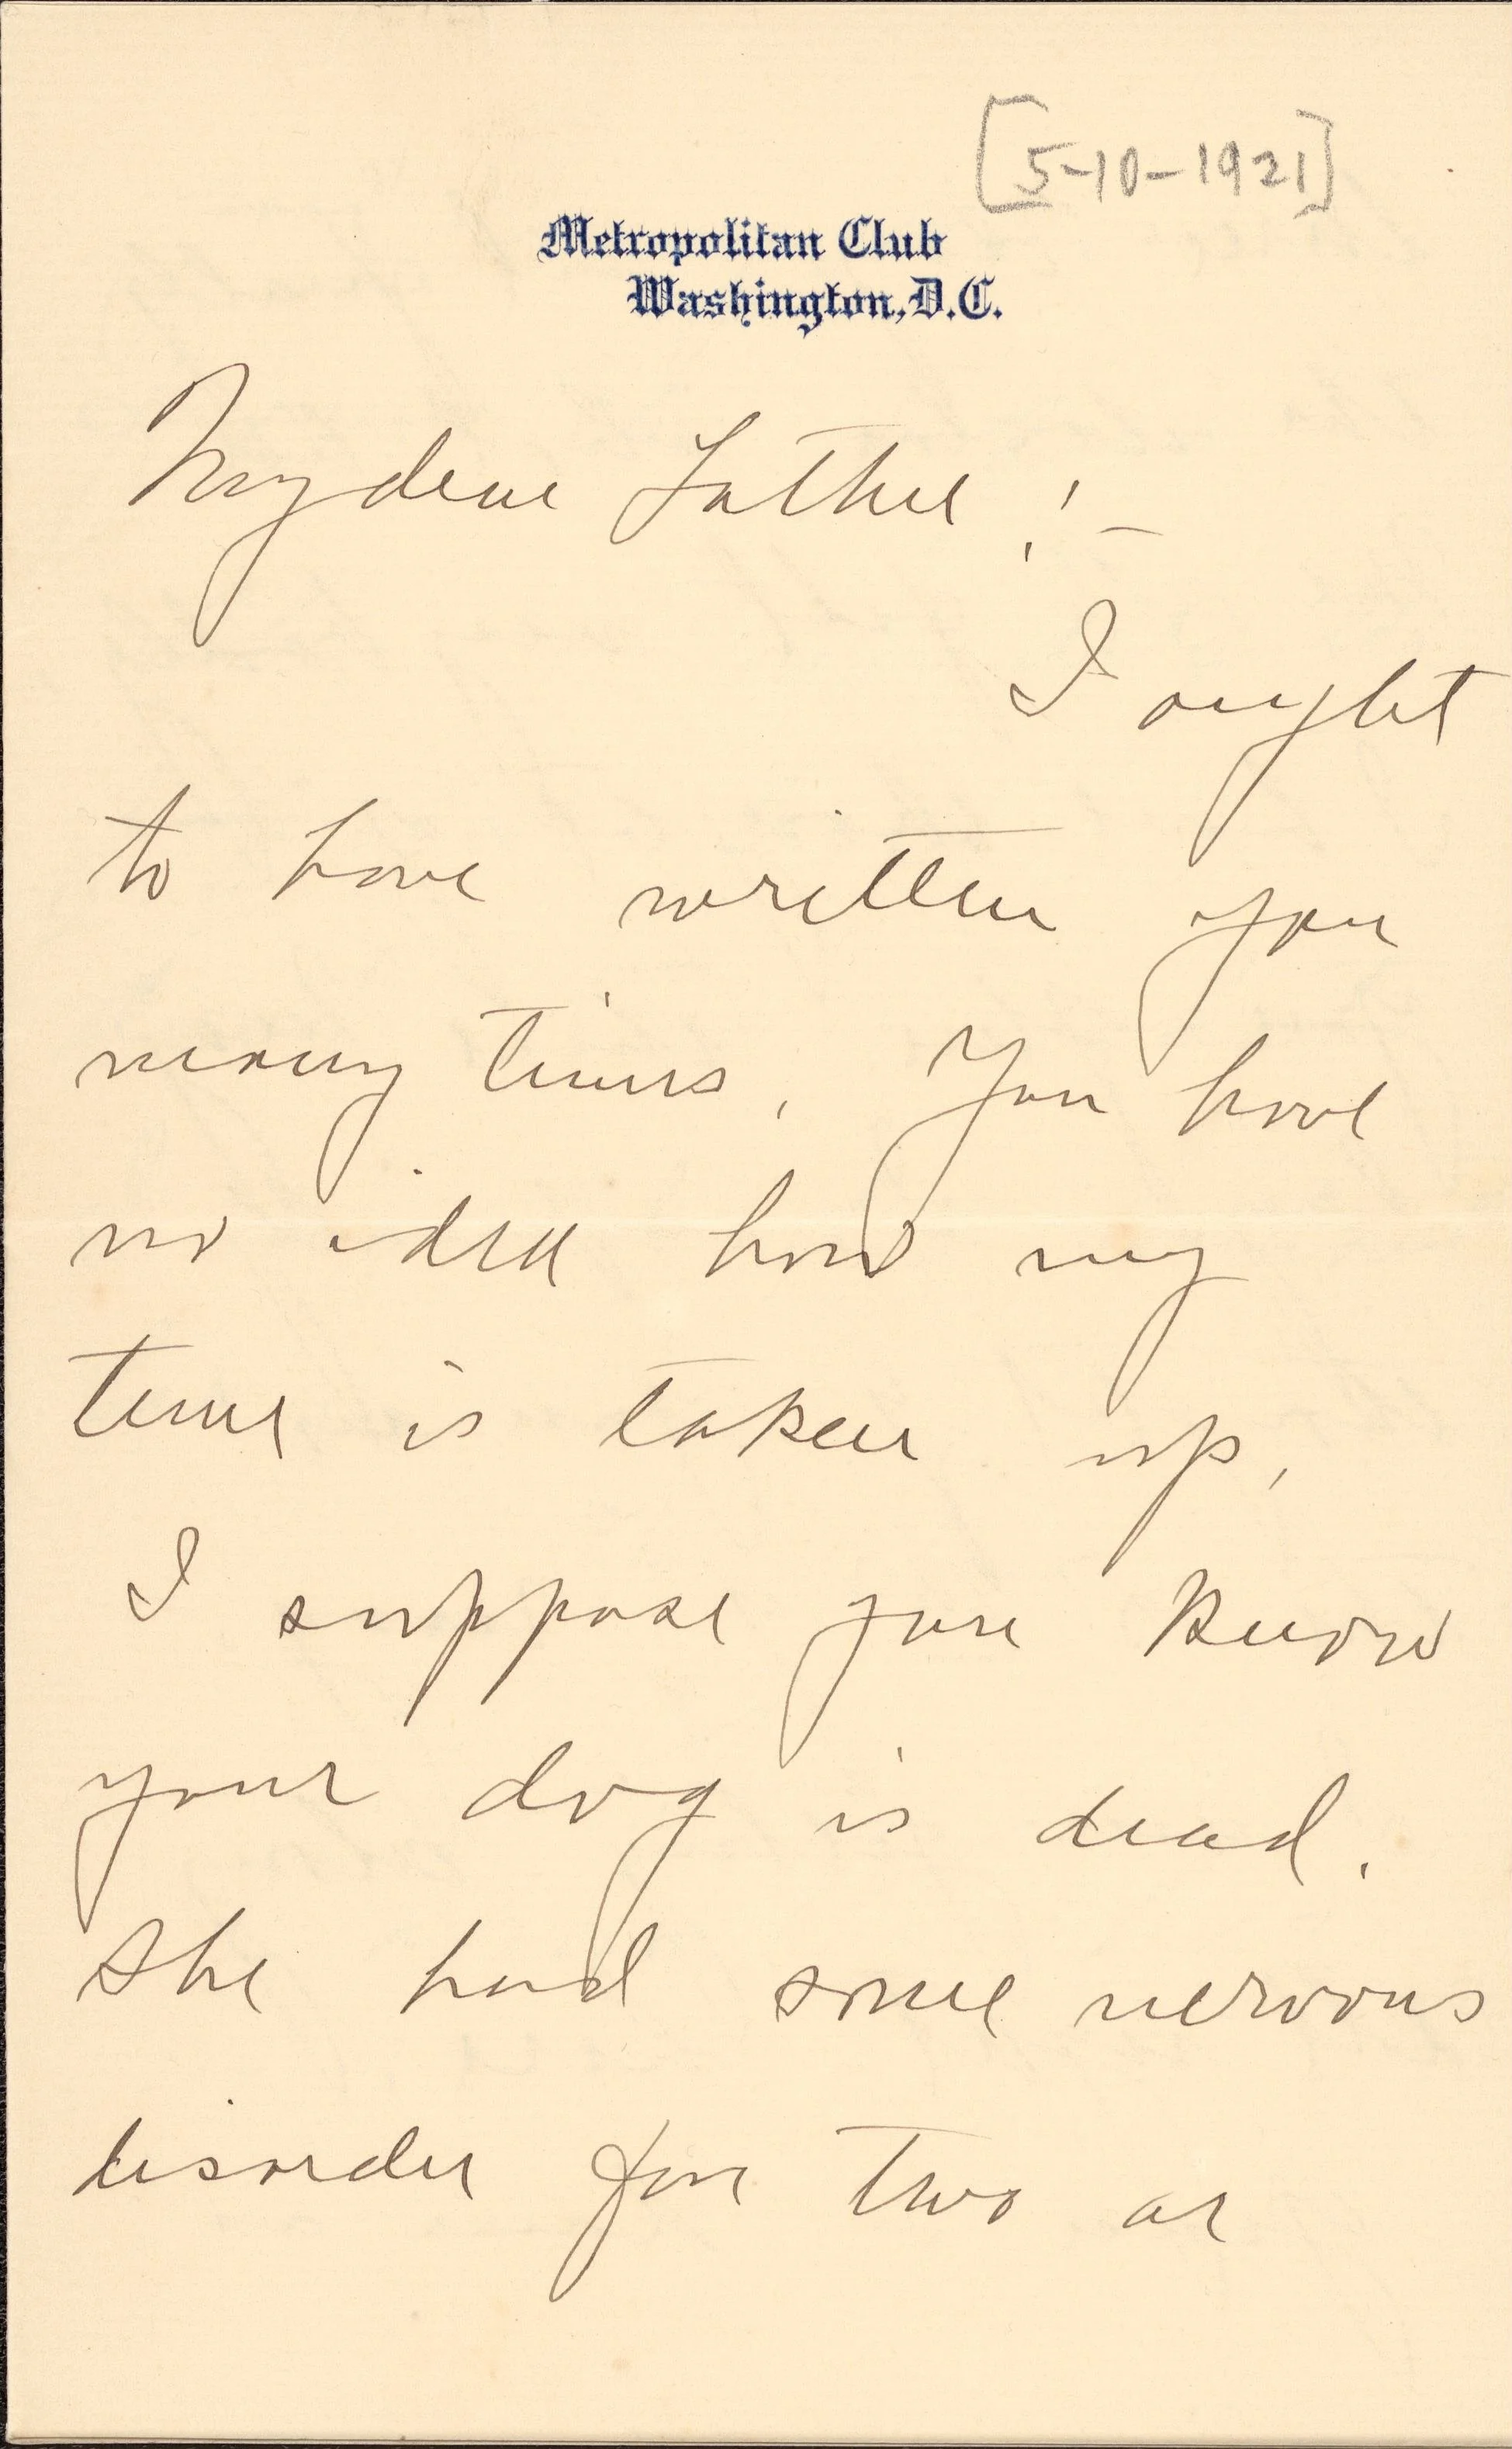 [5-10-1921]
Metropolitan Club
Washington, D.C.
My dear Father:-
I ought
to have written you
many times. You have
no idea how my
time is taken up.
I suppose you know
your dog is dead.
She had some nervous
disorder for two or